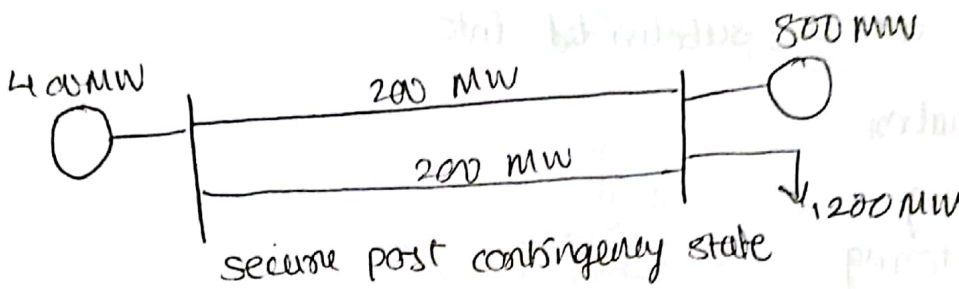 800 MW
400MW
200 MW
200 MW
1200 MW
secure post contingency state